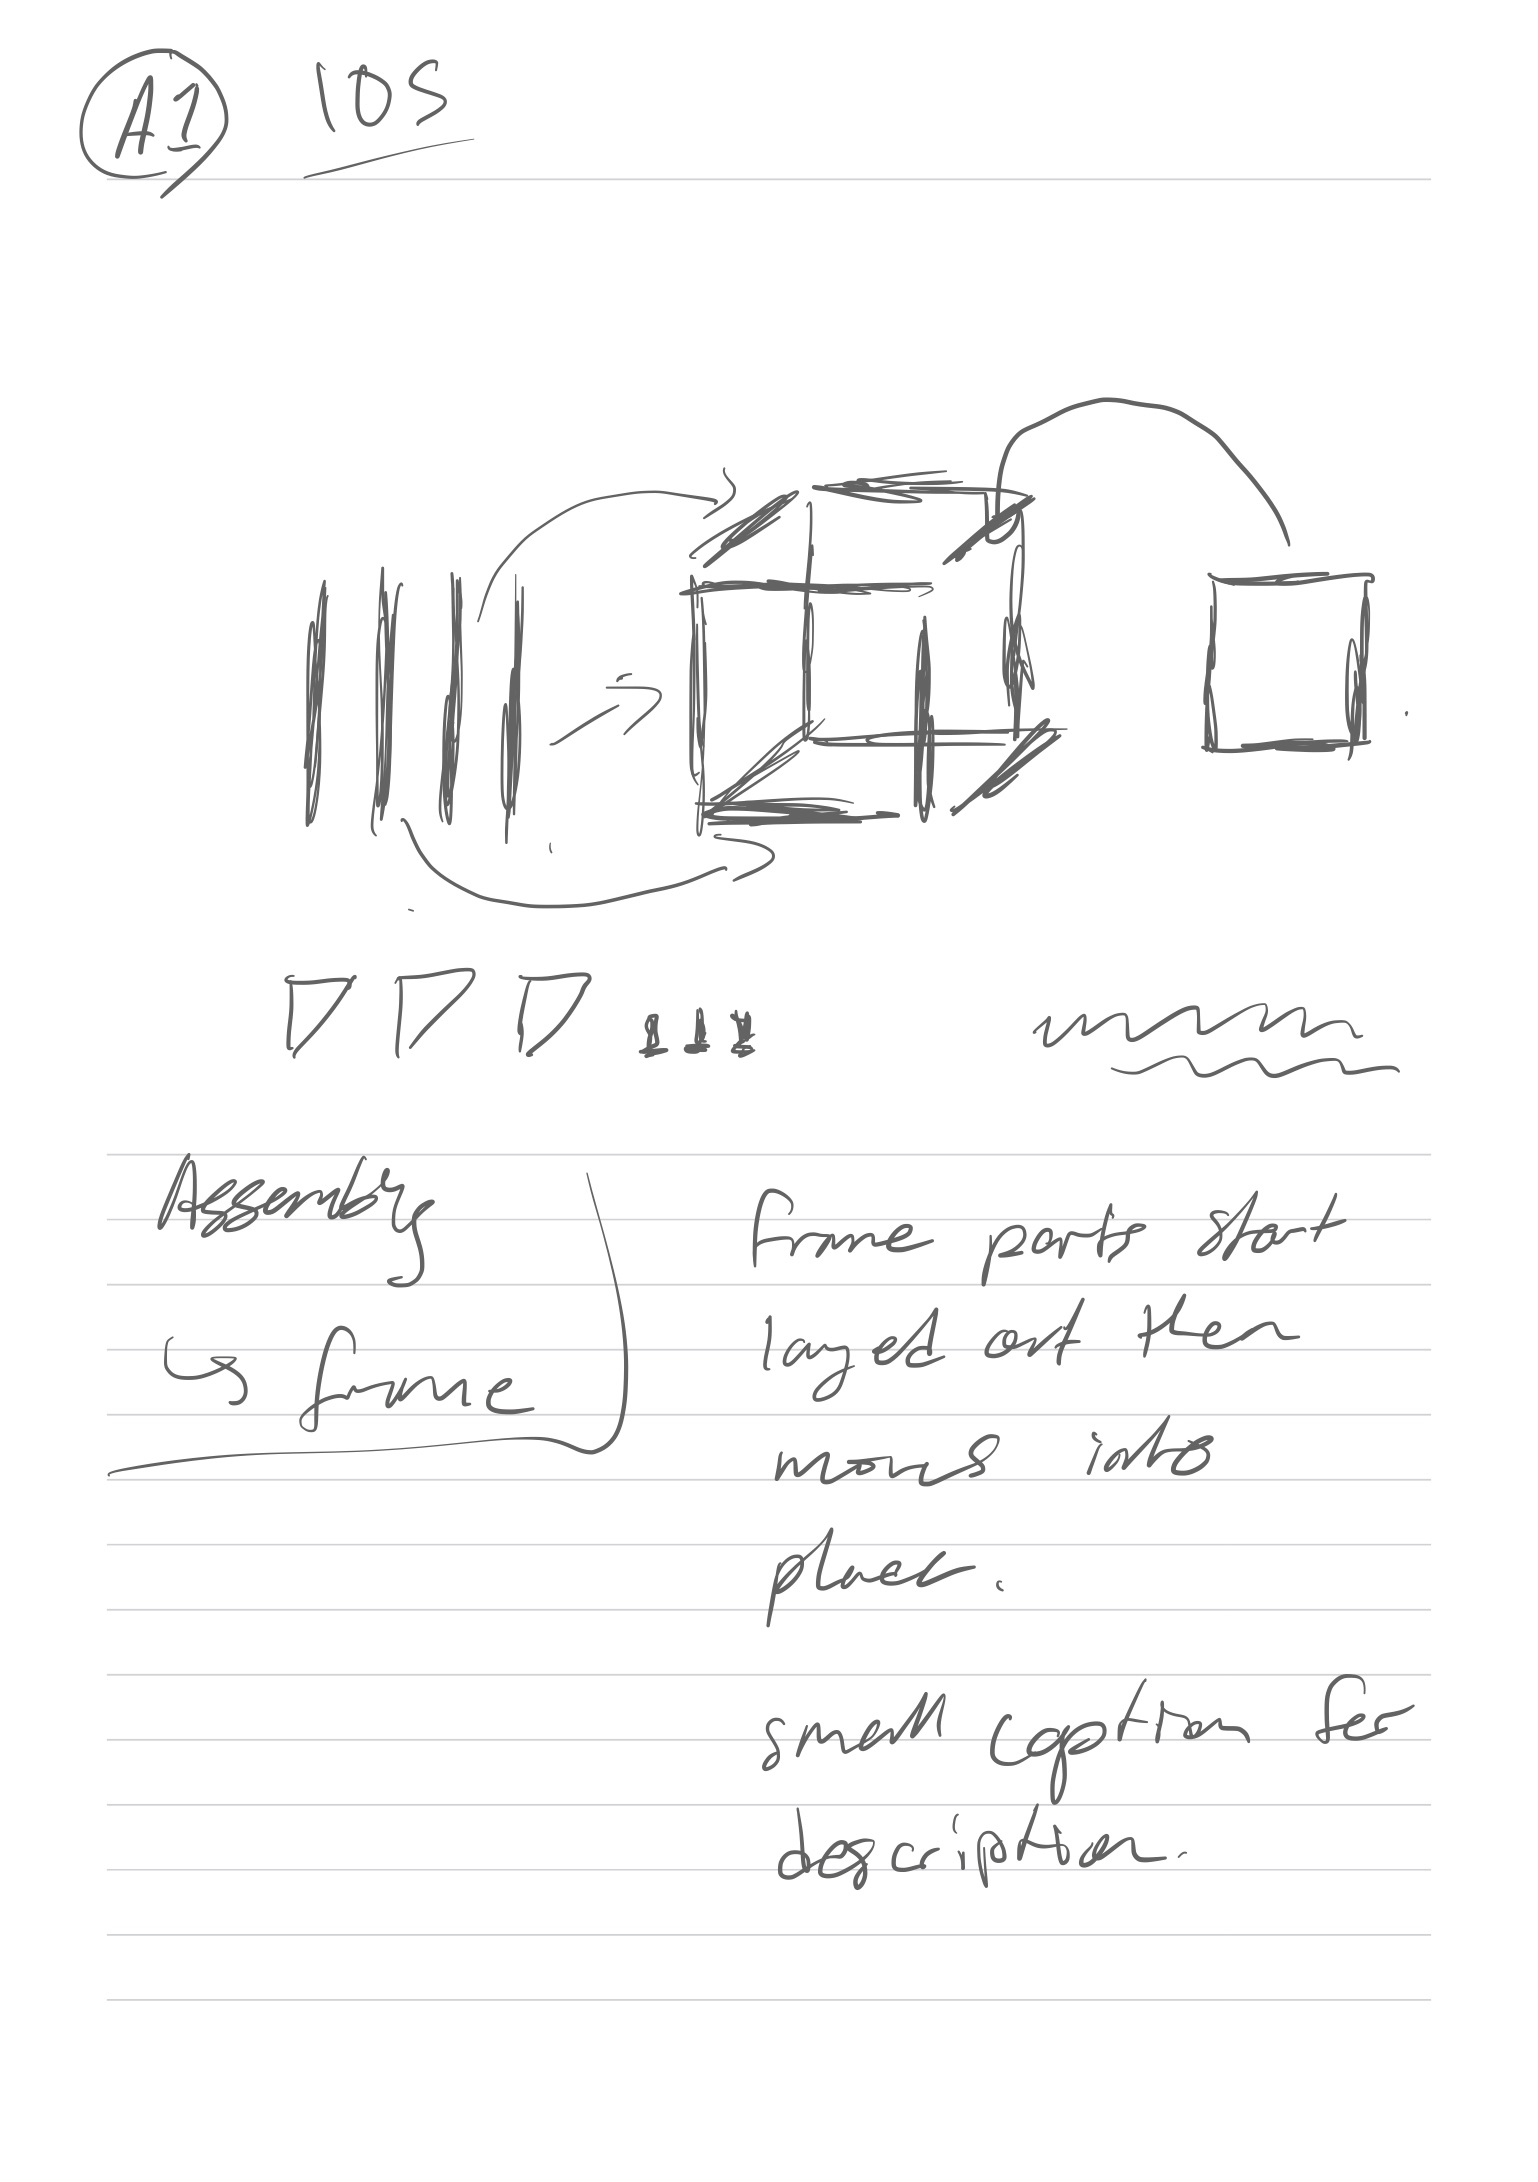 A1 10S
Assembly
↳ frame
frame parts start
layed out then
moves into
place.
small caption for
description.